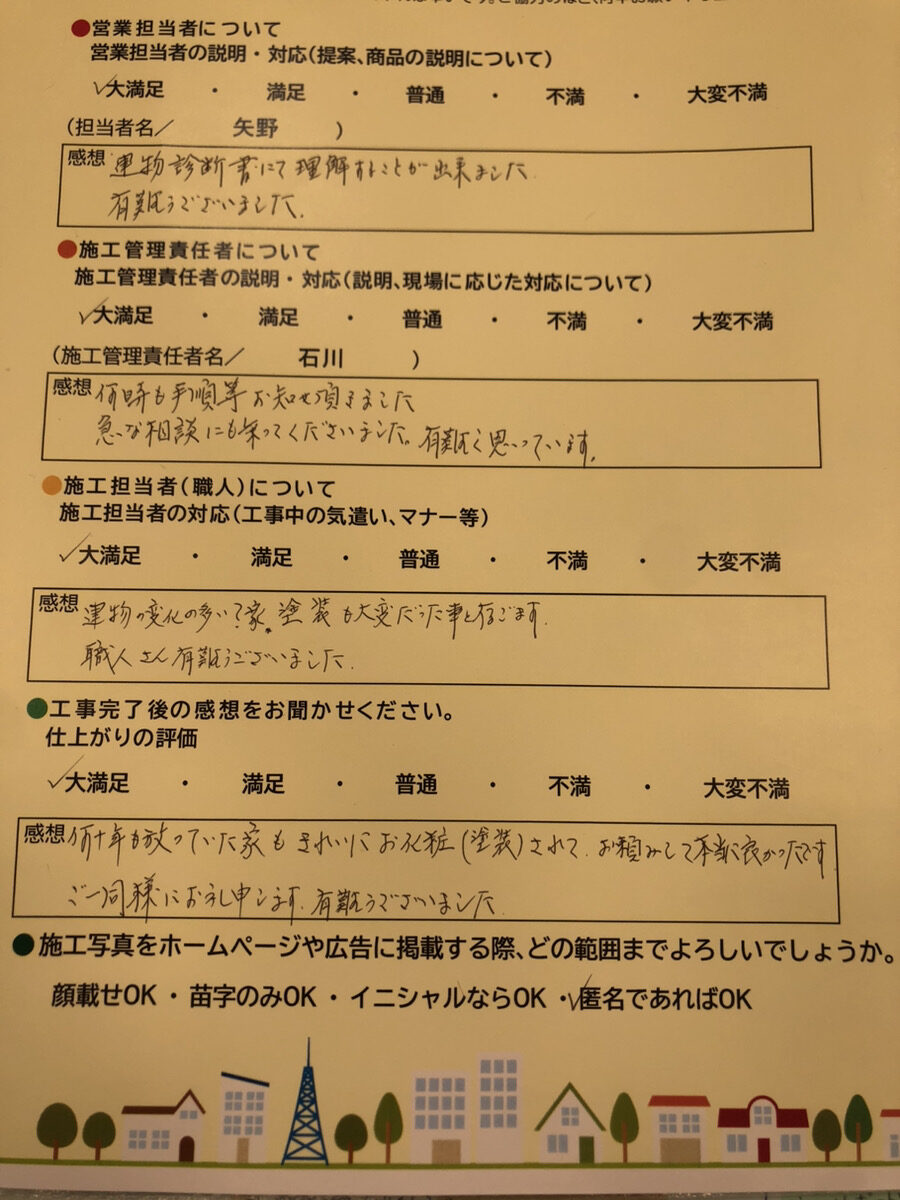 ●営業担当者について
営業担当者の説明・対応(提案、商品の説明について)
✓大満足 ・ 満足 ・ 普通 ・ 不満 ・ 大変不満
(担当者名／ 矢野 )
感想 建物診断書にて理解することが出来ました
有難うございました。
●施工管理責任者について
施工管理責任者の説明・対応(説明、現場に応じた対応について)
✓大満足 ・ 満足 ・ 普通 ・ 不満 ・ 大変不満
(施工管理責任者名／ 石川 )
感想 何時も手順等お知せ頂きました
急な相談にも乗ってくださいました。有難く思っています。
●施工担当者(職人)について
施工担当者の対応(工事中の気遣い、マナー等)
✓大満足 ・ 満足 ・ 普通 ・ 不満 ・ 大変不満
感想 建物の変化の多い?家。塗装も大変だった事と存ごます.
職人さん有難うございました.
●工事完了後の感想をお聞かせください。
仕上がりの評価
✓大満足 ・ 満足 ・ 普通 ・ 不満 ・ 大変不満
感想 何十年も放っていた家もきれいにお化粧(塗装)されて、お頼みして本当に良かったです
ご一同様にお礼申します.有難うございました.
●施工写真をホームページや広告に掲載する際、どの範囲までよろしいでしょうか。
顔載せOK・苗字のみOK・イニシャルならOK・✓匿名であればOK